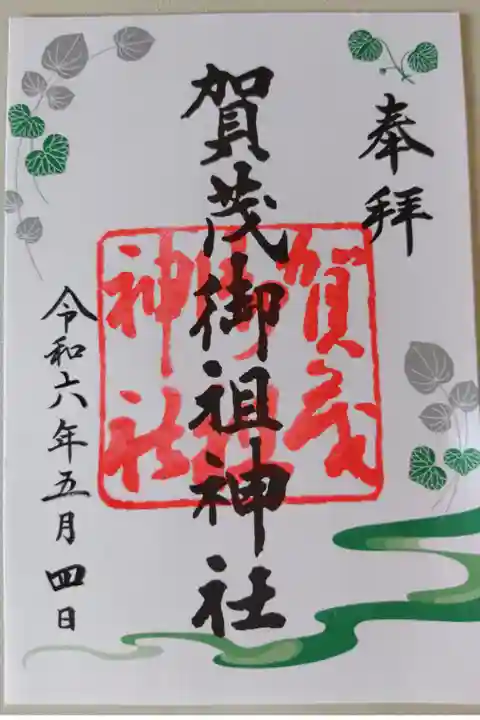 奉拝
賀茂御祖神社
令和六年五月四日
賀茂
御祖
神社